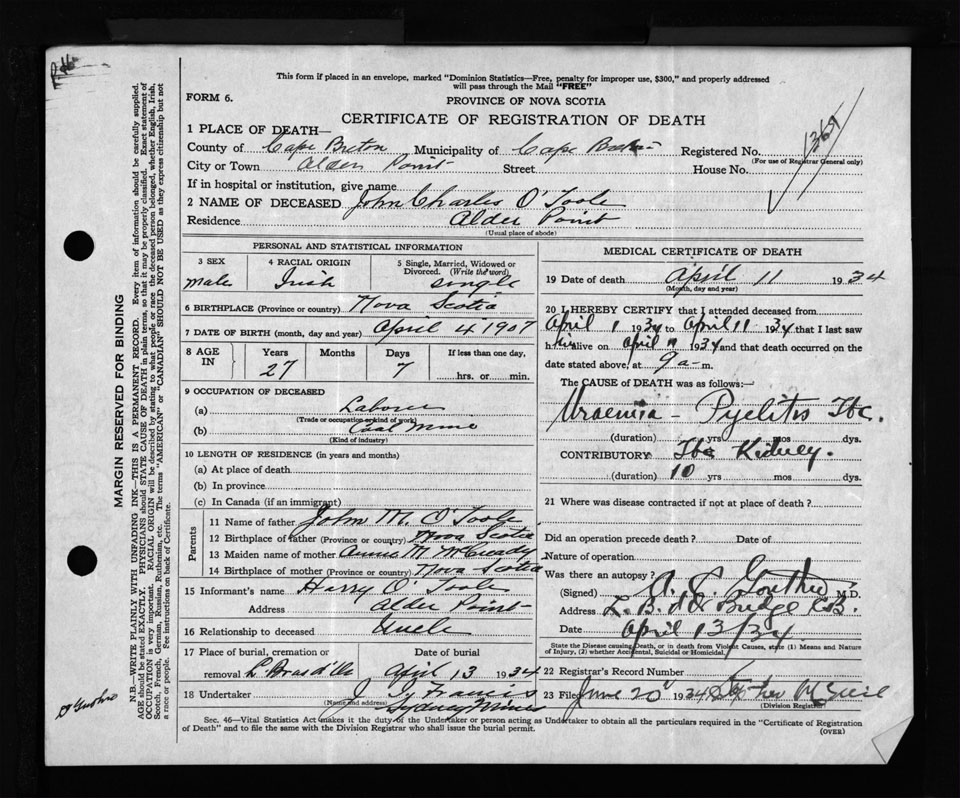 This form if placed in an envelope, marked "Dominion Statistics—Free, penalty for improper use, $300," and properly addressed
will pass through the Mail "FREE"
FORM 6.
PROVINCE OF NOVA SCOTIA
CERTIFICATE OF REGISTRATION OF DEATH
1369
1 PLACE OF DEATH—
County of Cape Breton Municipality of Cape Breton Registered No.
(For use of Registrar General only)
City or Town Alder Point Street House No.
If in hospital or institution, give name
2 NAME OF DECEASED John Charles O'Toole
Residence Alder Point
(Usual place of abode)
PERSONAL AND STATISTICAL INFORMATION
3 SEX 4 RACIAL ORIGIN 5 Single, Married, Widowed or
Divorced. (Write the word)
male Irish single
6 BIRTHPLACE (Province or country) Nova Scotia
7 DATE OF BIRTH (month, day and year) April 4 1907
8 AGE IN Years Months Days If less than one day,
27 7 hrs. or min.
9 OCCUPATION OF DECEASED
(a) Laborer
(Trade or occupation or kind of work)
(b) Coal Mine
(Kind of industry)
10 LENGTH OF RESIDENCE (in years and months)
(a) At place of death
(b) In province
(c) In Canada (if an immigrant)
Parents
11 Name of father John M. O'Toole
12 Birthplace of father (Province or country) Nova Scotia
13 Maiden name of mother Annie M McCready
14 Birthplace of mother (Province or country) Nova Scotia
15 Informant's name Harry O'Toole
Address Alder Point
16 Relationship to deceased Uncle
17 Place of burial, cremation or Date of burial
removal L Bras d'Or April 13 1934
18 Undertaker J Ty Francis
(Name and address) Sydney Mines
MEDICAL CERTIFICATE OF DEATH
19 Date of death April 11 1934
(Month, day and year)
20 I HEREBY CERTIFY that I attended deceased from
April 1 1934 to April 11 1934 that I last saw
him alive on April 1934 and that death occurred on the
date stated above, at 9 a m.
The CAUSE OF DEATH was as follows:—
Uraemia - Pyelitis Tbc.
(duration) yrs mos dys.
CONTRIBUTORY Tbc Kidney.
(duration) 10 yrs mos dys.
21 Where was disease contracted if not at place of death?
Did an operation precede death? Date of
Nature of operation
Was there an autopsy?
(Signed) M.D.
Address Bridge C.B.
Date April 13/34
State the Disease causing Death, or in death from Violent Causes, state (1) Means and
Nature of Injury, (2) whether Accidental, Suicidal or Homicidal.
22 Registrar's Record Number
23 Filed June 20 1934
(Division Registrar)
Sec. 46—Vital Statistics Act makes it the duty of the Undertaker or person acting as Undertaker to obtain all the particulars required in the "Certificate of Registration
of Death" and to file the same with the Division Registrar who shall issue the burial permit.
(OVER)
MARGIN RESERVED FOR BINDING
N.B.—WRITE PLAINLY WITH UNFADING INK—THIS IS A PERMANENT RECORD. Every item of information should be carefully supplied.
AGE should be stated EXACTLY. PHYSICIANS should STATE CAUSE OF DEATH in plain terms, so that it may be properly classified. Exact statement of
OCCUPATION is very important. RACIAL ORIGIN will be described by stating to what people or race the deceased person belonged, whether English, Irish,
Scotch, French, German, Russian, Ruthenian, etc. The terms "AMERICAN" or "CANADIAN" SHOULD NOT BE USED as they express citizenship but not
a race or people. See instructions on back of Certificate.